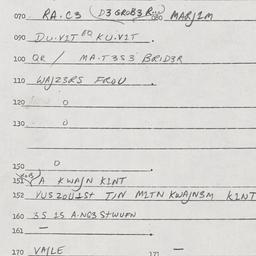 070 RA.C3 (D3 GROB3R... 080 MARJIM
090 DU.VIT EQ KU.VIT
100 QR / MA.T3S3 BRID3R
110 WAJZ3RS FROU
120 0
130 0
150 0
151 A KWAJN KINT
152 TJN MITN KWAJN3M KINT
160 3S IS A.NG3S
161 —
170 VAJLE 171 —